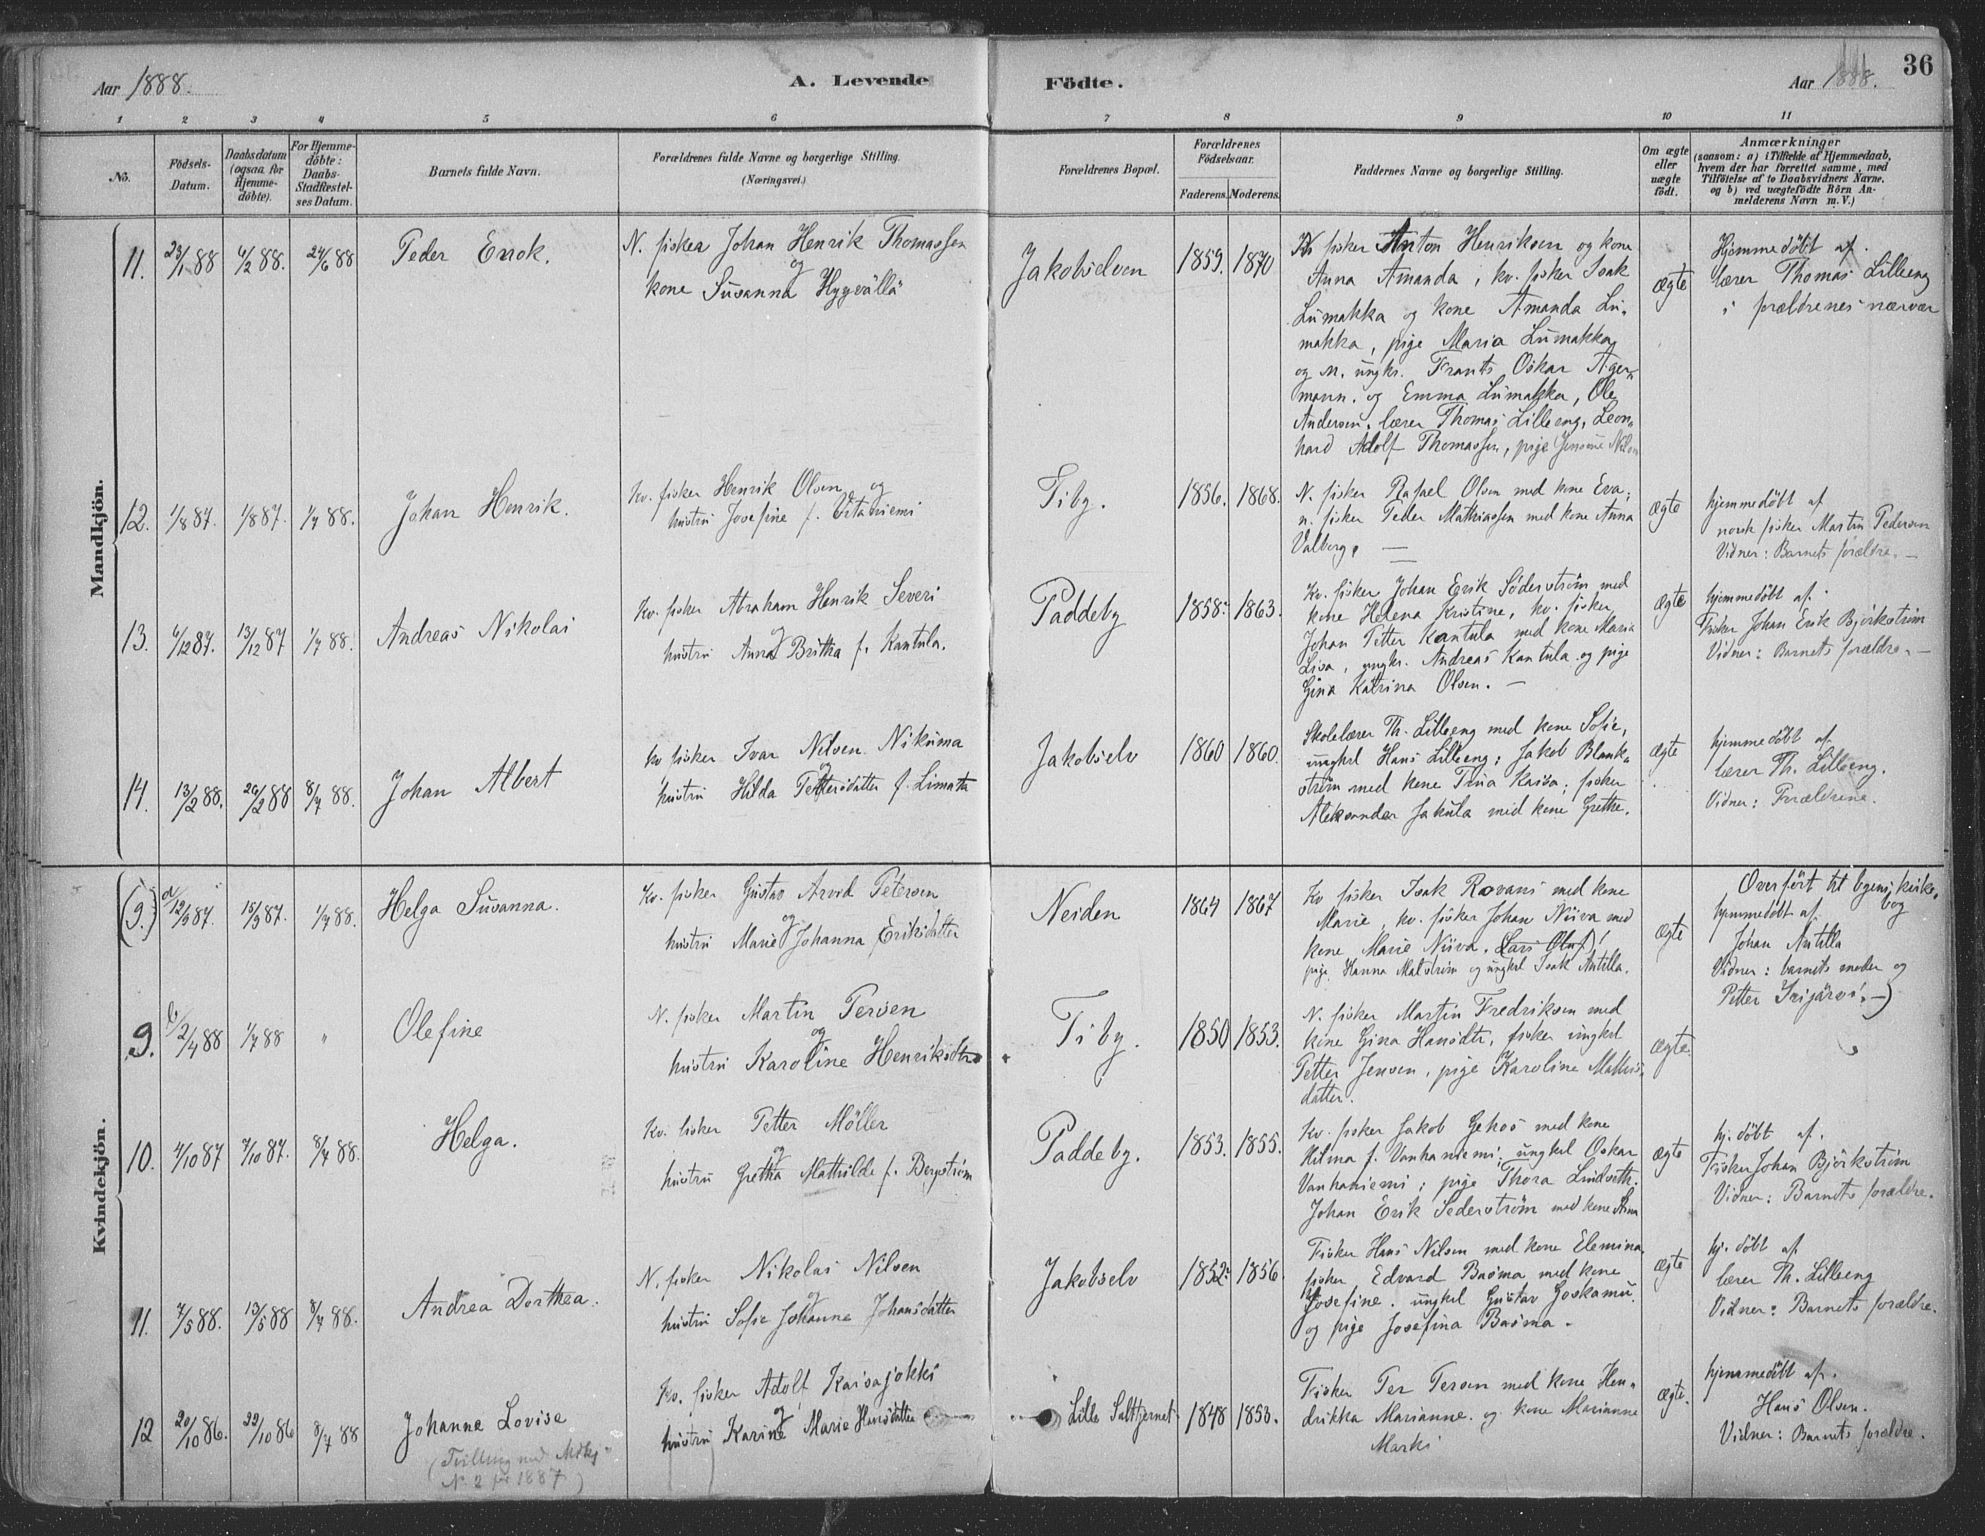 Aar 1888.
A. Levende
Födte.
Aar 1888.
36
1 2 3 4 5 6 7 8 9 10 11
No.
Födsels-
Datum.
Daabsdatum
(ogsaa for
Hjemme-
döbte).
For Hjemme-
döbte:
Daabs-
Stadfæstel-
ses Datum.
Barnets fulde Navn.
Forældrenes fulde Navne og borgerlige Stilling.
(Næringsvei.)
Forældrenes Bopæl.
Forældrenes
Födselsaar.
Faderens. Moderens.
Faddernes Navne og borgerlige Stilling.
Om ægte
eller
uægte
födt.
Anmærkninger
(saasom: a) i Tilfælde af Hjemmedaab,
hvem der har forrettet samme, med
Tilföielse af to Daabsvidners Navne,
og b) ved uægtefödte Börn An-
melderens Navn m. V.)
Mandkjön.
11. 23/1 88 4/2 88. 24/6 88
Peder Enok.
N. fisker Johan Henrik Thomassen
og
kone Susanna Hyyvällä
Jakobselven
1859. 1870
fisker Anton Henriksen og kone
Anna Amanda, kv. fisker Isak
Lumakka og kone Amanda Lu-
makka, pige Maria Lumakka
og N. ungkr. Frants Oskar Ager-
mann. og Emma Lumakka, Ole
Andersen, lærer Thomas Lilleeng, Leon-
hard Adolf Thomassen, pige
ægte
Hjemmedöbt af.
lærer Thomas Lilleeng
i forældrenes nærvær
12. 1/8 87. 1/8 87. 1/7 88.
Johan Henrik.
Kv. fisker Henrik Olsen og
hustru Josefine f. Vitaniemi
Tiby.
1856. 1868.
N. fisker Rafael Olsen med kone Eva;
n. fisker Peder Mathiassen med kone Anna
Valborg. —
ægte
hjemmedöbt af
norsk fisker Martin Pedersen
Vidner: Barnets forældre. —
13. 6/12 87. 13/12 87 1/7 88.
Andreas Nikolai
Kv. fisker Abraham Henrik Severi
og
hustru Anna Britha f. Kantula.
Paddeby
1858. 1863.
Kv. fisker Johan Erik Söderström med
kone Helena Kristine, kv. fisker
Johan Petter Kantula med kone Maria
Lisa, ungkr. Andreas Kantula og pige
Gina Katrina Olsen. —
ægte
hjemmedöbt af.
Fisker Johan Erik Björkström
Vidner: Barnets forældre. —
14. 13/2 88. 26/2 88 8/7 88.
Johan Albert
kv fisker Ivar Nilsen Nikuma
og
hustru Hilda Pettersdatter f. Limata
Jakobselv
1860 1860.
Skolelærer Th. Lilleeng med kone Sofie,
ungkrl Hans Lilleeng; Jakob Blank-
ström med kone Tina Kaisa; fisker
Aleksander Jakula med kone Grethe.
ægte
hjemmedöbt af
lærer Th. Lilleeng.
Vidner: Forældrene.
Kvindekjön.
(9.) a/ 12/9 87. 15/9 87. 1/7 88.
Helga Susanna.
Kv. fisker Gustav Arvid Petersen
og
hustru Marie Johanna Eriksdatter
Neiden
1864 1867
Kv fisker Isak Rovani med kone
Marie, kv. fisker Johan Niiva med
kone Marie Niiva. Lars Olaf!
pige Hanna Malström og ungkrl Isak Antilla.
ægte
Overfört til egens kirke-
bog
hjemmedöbt af
Johan Antilla
Vidner: barnets moder og
Petter Irijärvi. —)
9. b/ 2/4 88 1/7 88 "
Olefine
N. fisker Martin Persen
og
hustru Karoline Henriksdtr
Tiby.
1850 1853.
N. fisker Martin Fredriksen med
kone Gina Hansdtr, fisker ungkrl
Petter Jensen, pige Karoline Mathis-
datter.
ægte
10. 4/10 87 7/10 87. 8/7 88.
Helga.
Kv. fisker Petter Möller
og
hustru Gretha Mathilde f. Bergström
Paddeby.
1853. 1855.
Kv. fisker Jakob Gekos med kone
Hilma f. Vanhaniemi, ungkrl Oskar
Vanhaniemi; pige Thora Lindseth.
Johan Erik Sederström med kone Stina
ægte
hj. döbt af.
Fisker Johan Björkström
Vidner: Barnets forældre.
11. 7/5 88. 13/5 88 8/7 88.
Andrea Dorthea.
N. fisker Nikolai Nilsen
og
hustru Sofie Johanne Johansdatter
Jakobselv
1852. 1856
Fisker Hans Nilsen med kone Elemina
fisker, Edvard Basma med kone
Josefine. ungkrl Gustav Goskamu
og pige Josefina Basma.
ægte
hj. döbt af
lærer Th. Lilleeng
Vidner: Barnets forældre.
12 20/10 86. 22/10 86 8/7 88
Johanne Lovise
(Tvilling med Mdkj
N. 2 for 1887)
Kv. fisker Adolf Kaisajokki
og
hustru Karine Marie Hansdatter
Lille Saltfjernet
1848 1853.
Fisker Per Persen med kone Hen-
drikka Marianne. og kone Marianne
Marki
ægte.
hjemmedöbt af.
Hans Olsen.
Vidner: Barnets forældre.